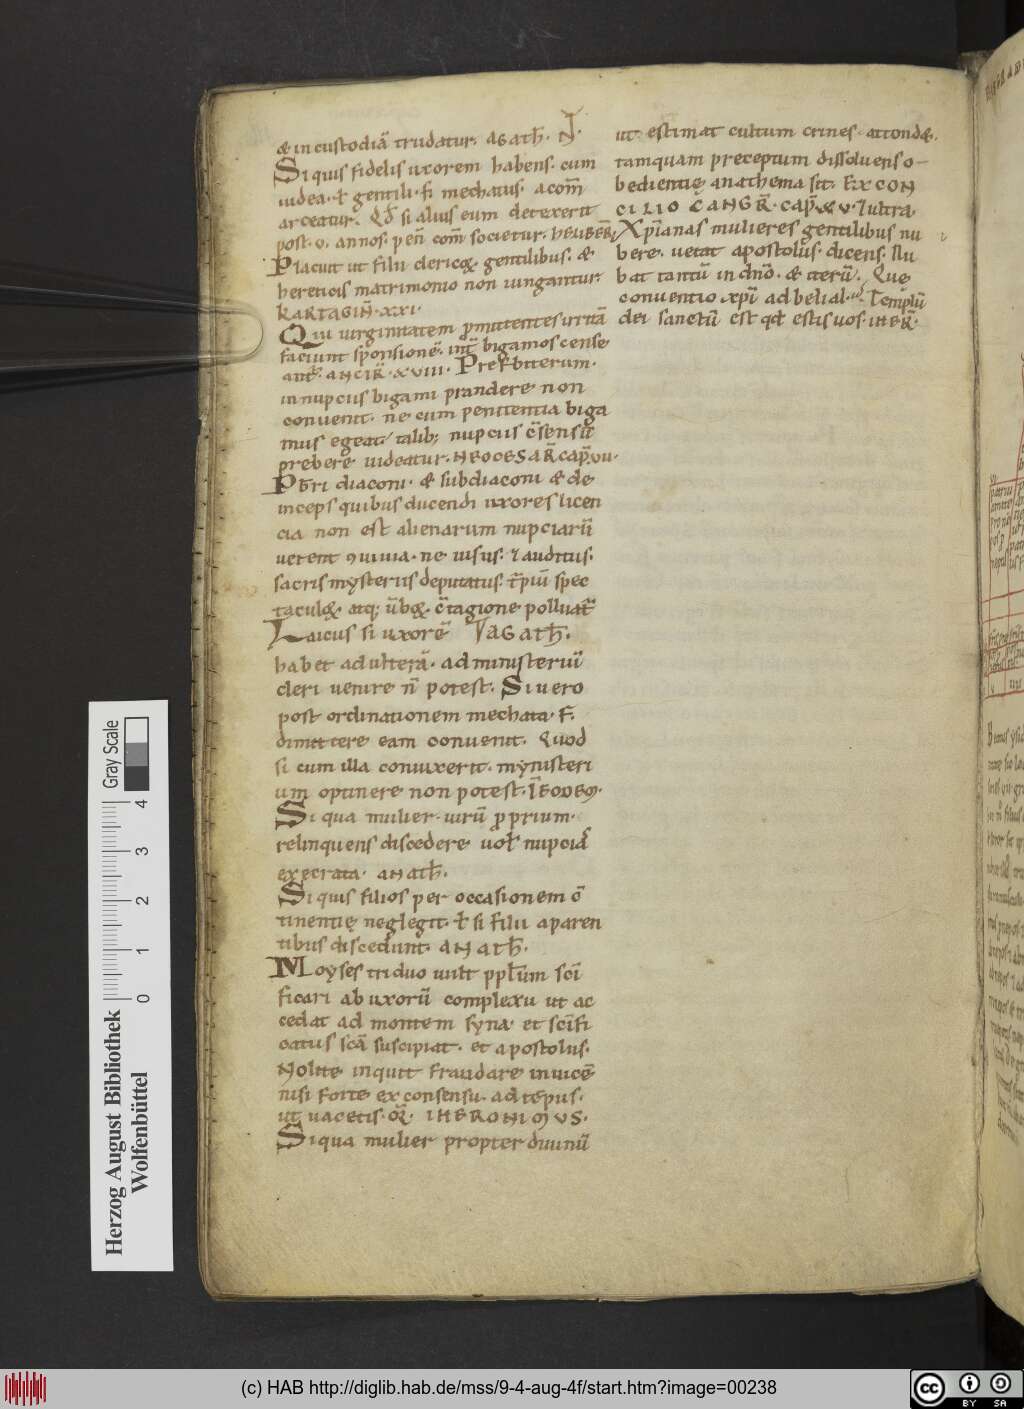 & in custodiā trudatur. agath̄. N̄.
Si quis fidelis uxorem habens. cum
iudea. ł gentili. f̄ mechatus. acom̄
arceatur. Qd̄ si alius eum detexerit
post. v. annos. pen̄ com̄ societur.
Placuit ut filii clericoꝝ gentilibus. &
hereticis matrimonio non iungantur.
KARTAGIN̄. xxi.
Qui uirginitatem ꝓmittentes irritā
faciunt sponsionē. int̄ bigamos cense
ant̄. ANCIR̄. xviii. Presbiterum.
in nupciis bigami prandere non
conuenit. ne cum penitentia biga
mus egeat. talib; nupciis c̄sensū
prebere uideatur. NEOCESAR̄ CAP̄. VII.
Pb̄ri diaconi. & subdiaconi & de
inceps quibus ducendi uxores licen
cia non est alienarum nupciarū
uerent ꝯuiuia. ne uisus. ⁊ auditus.
sacris mysteriis deputatus. t̄piū spec
taculoꝝ. atq; ūboꝝ. c̄tagione polluat̄
Laicus si uxorē AGATH̄.
habet adulterā. ad ministeriū
cleri uenire n̄ potest. Si uero
post ordinationem mechata. F.
dimittere eam conuenit. Quod
si cum illa coniuxerit. mynisteri
um optinere non potest. ĪEODEM.
Si qua mulier. uirū ꝓprium.
relinquens discedere uoł nupciā
execrata. ANATH̄.
Si quis filios per occasionem ō
tinentię neglegit. ł si filii a paren
tibus discedunt. ANATH̄.
Moyses triduo uult ppłum sc̄i
ficari ab uxorū complexu ut ac
cedat ad montem syna. et sc̄ifi
catus sc̄ā suscipiat. et apostolus.
Nolite inquit fraudare inuicē
nisi forte ex consensu. ad tēpus.
ut uacetis. or̄. IHERONIMVS.
Si qua mulier propter diuinū
ut estimat cultum crines attond&.
tamquam preceptum dissoluens o-
bedientię anathema sit. EX CON
CILIO GANGR̄. cap̄. xv. ⁊ ultra.
Xp̄ianas mulieres gentilibus nu
bere. uetat apostolus. dicens. Nu
bat tantū in dn̄o. & iterū. Quę
conuentio xp̄i ad belial. Templū
dei sanctū est qd̄ estis uos. IHER̄.
Herzog August Bibliothek
Wolfenbüttel
0 1 2 3 4
Gray Scale
(c) HAB http://diglib.hab.de/mss/9-4-aug-4f/start.htm?image=00238
cc BY SA